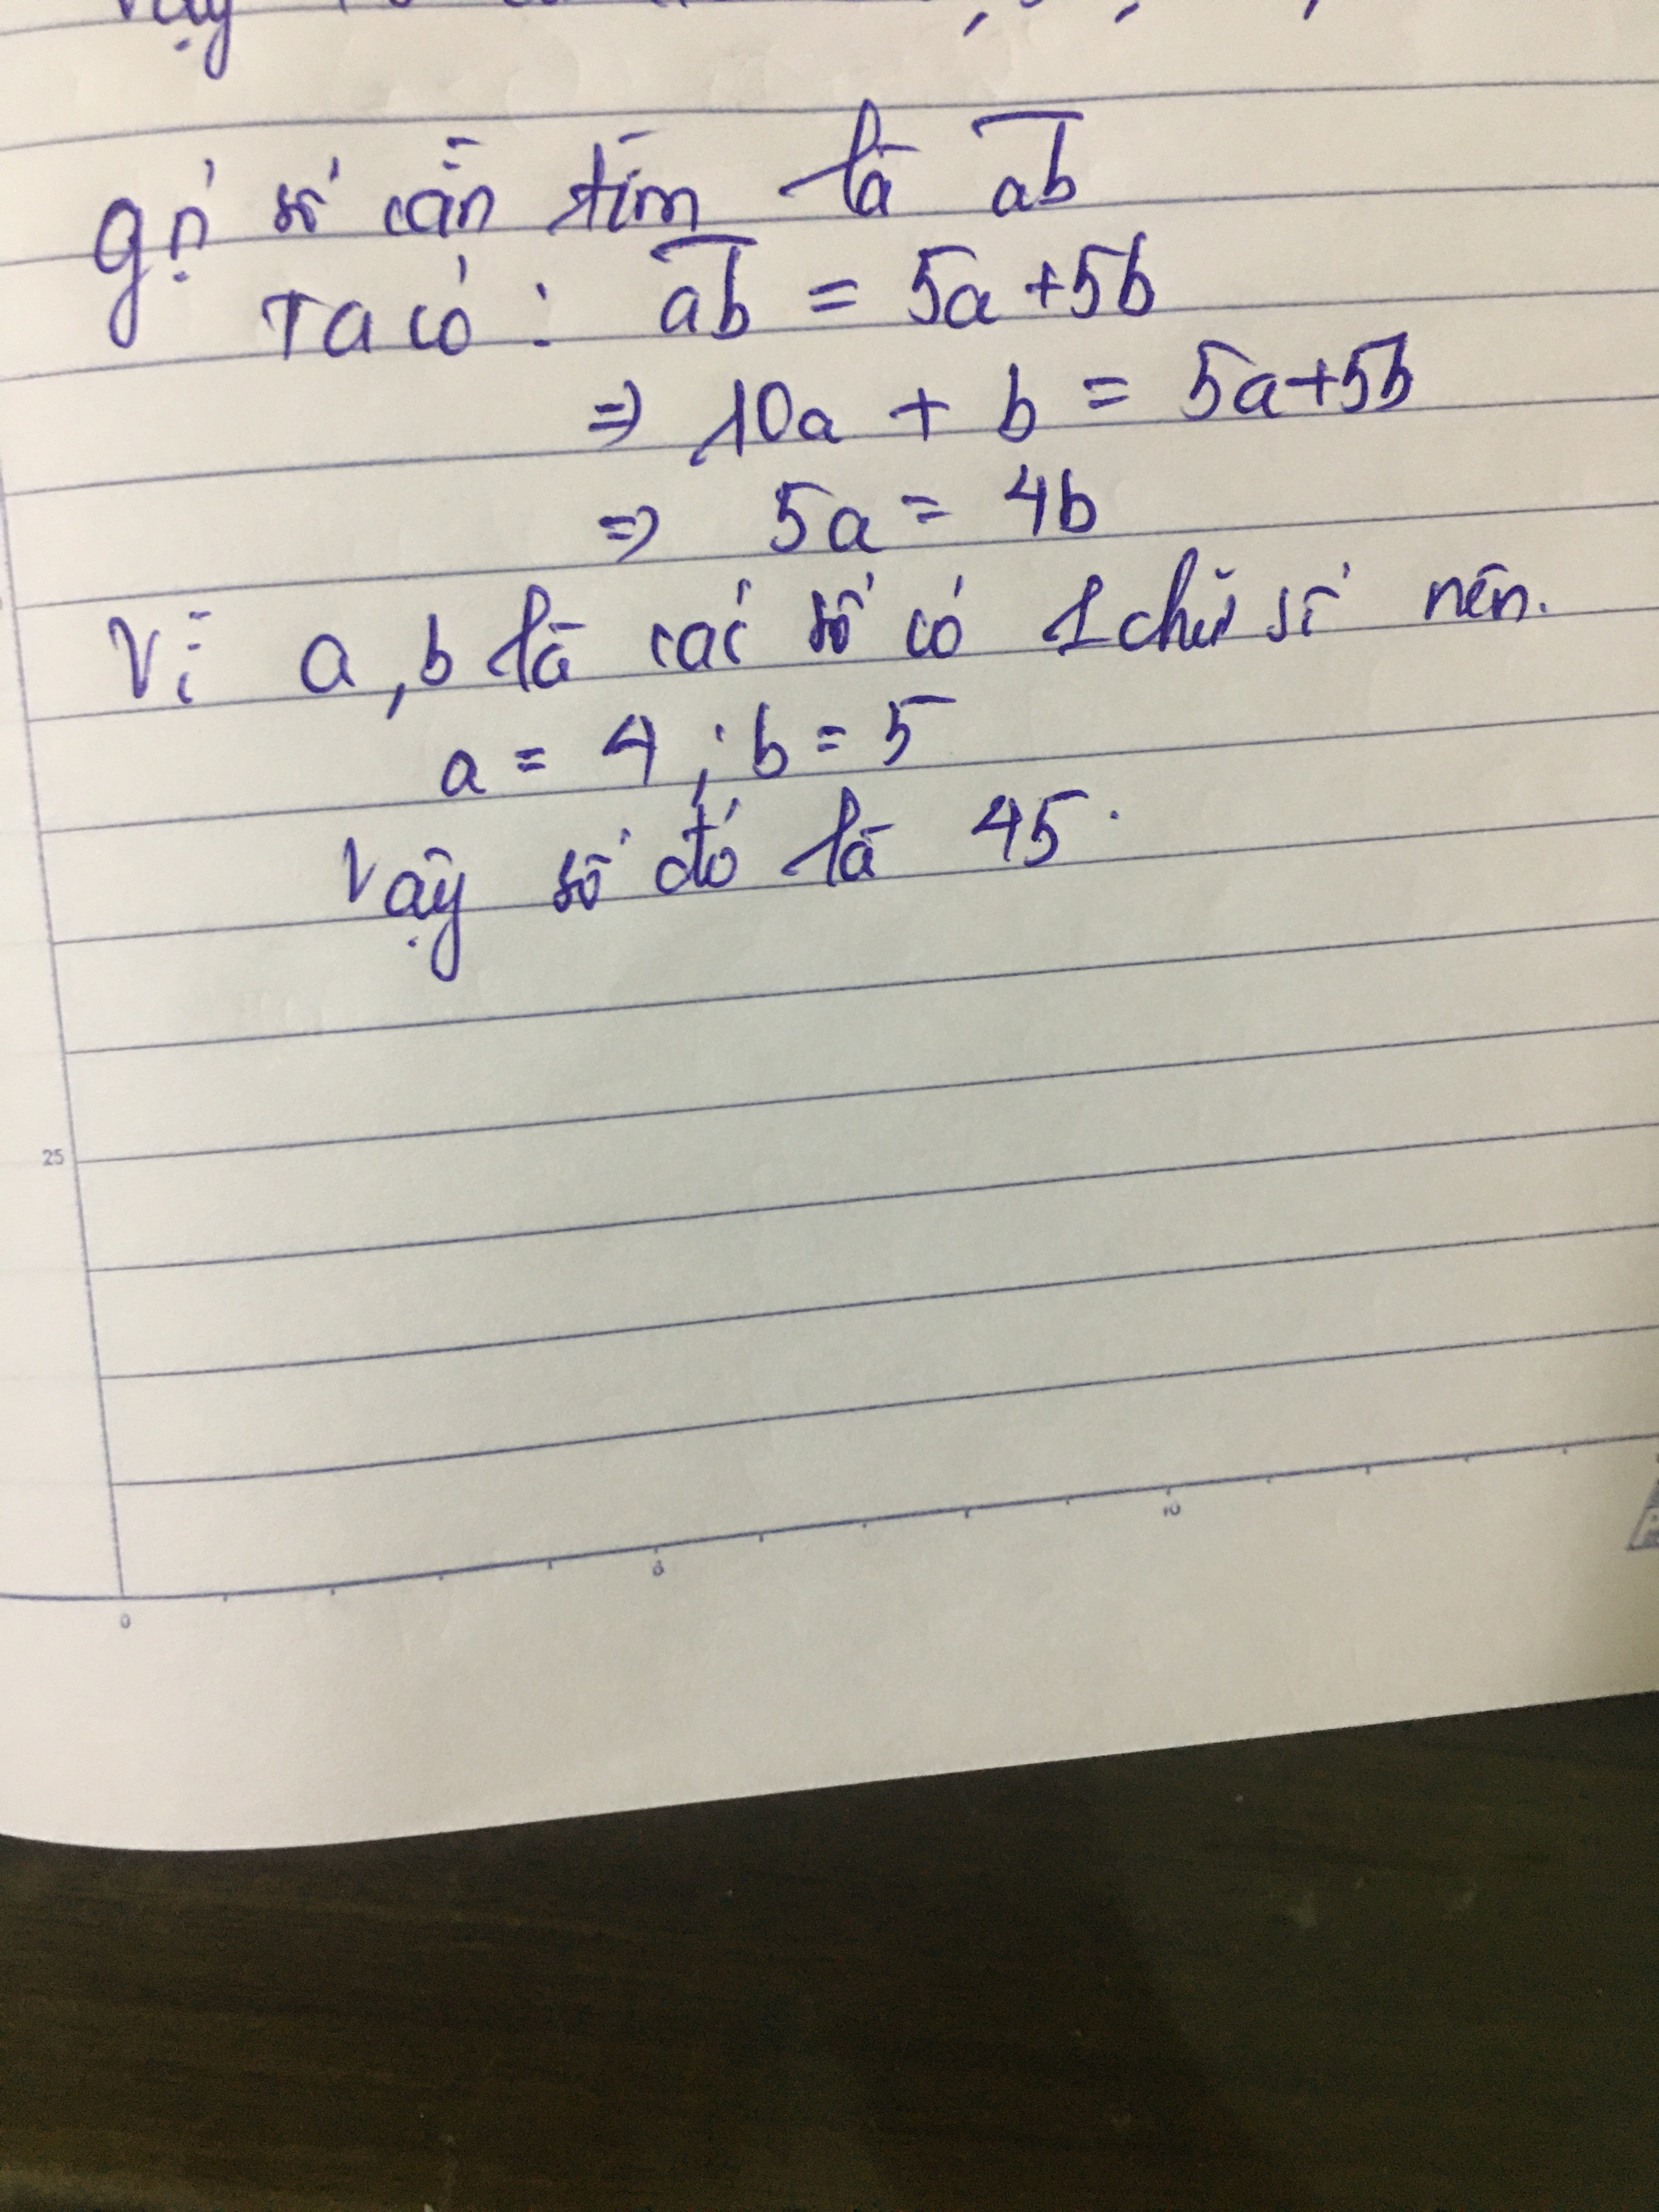 Vậy
Gọi số cần tìm là ab
Ta có : ab = 5a+5b
⇒ 10a + b = 5a+5b
⇒ 5a = 4b
Vì a, b là các số có 1 chữ số nên.
a = 4 ; b = 5
Vậy số đó là 45.
25
0